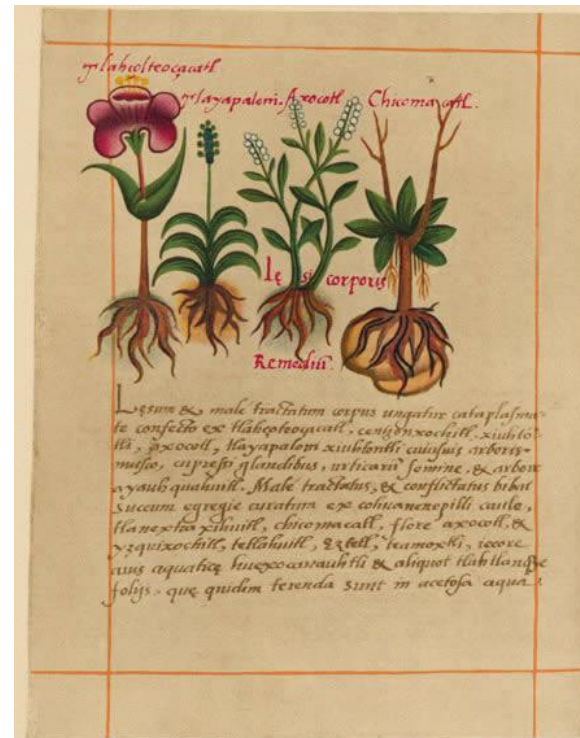 tlahcolteoçacatl.
tlayapaloni. Axocotl Chicomacatl.
Lę si corporis
Remediũ.
Lęsum & male tractatum corpus ungatur cataplasma-
te confecto ex tlahçolteoçacatl, centzonxochitl, xiuhto-
tli, axocotl, tlayapaloni xiuhtontli cuiusuis arboris
musco, cupressi glandibus, urticarũ semine, & arbore
ayauhquahuitl. Malè tractatus, & conflictatus bibat
succum egregiè curatum ex cohuanenepilli caule,
tlanextia xihuitl, chicomacatl, flore axocotl, &
yzquixochitl, tetlahuitl, eztetl, teamoxtli, iecore
auis aquaticę huexocanauhtli & aliquot tlahtlanque
folijs. que quidem terenda sunt in acetosa aqua.